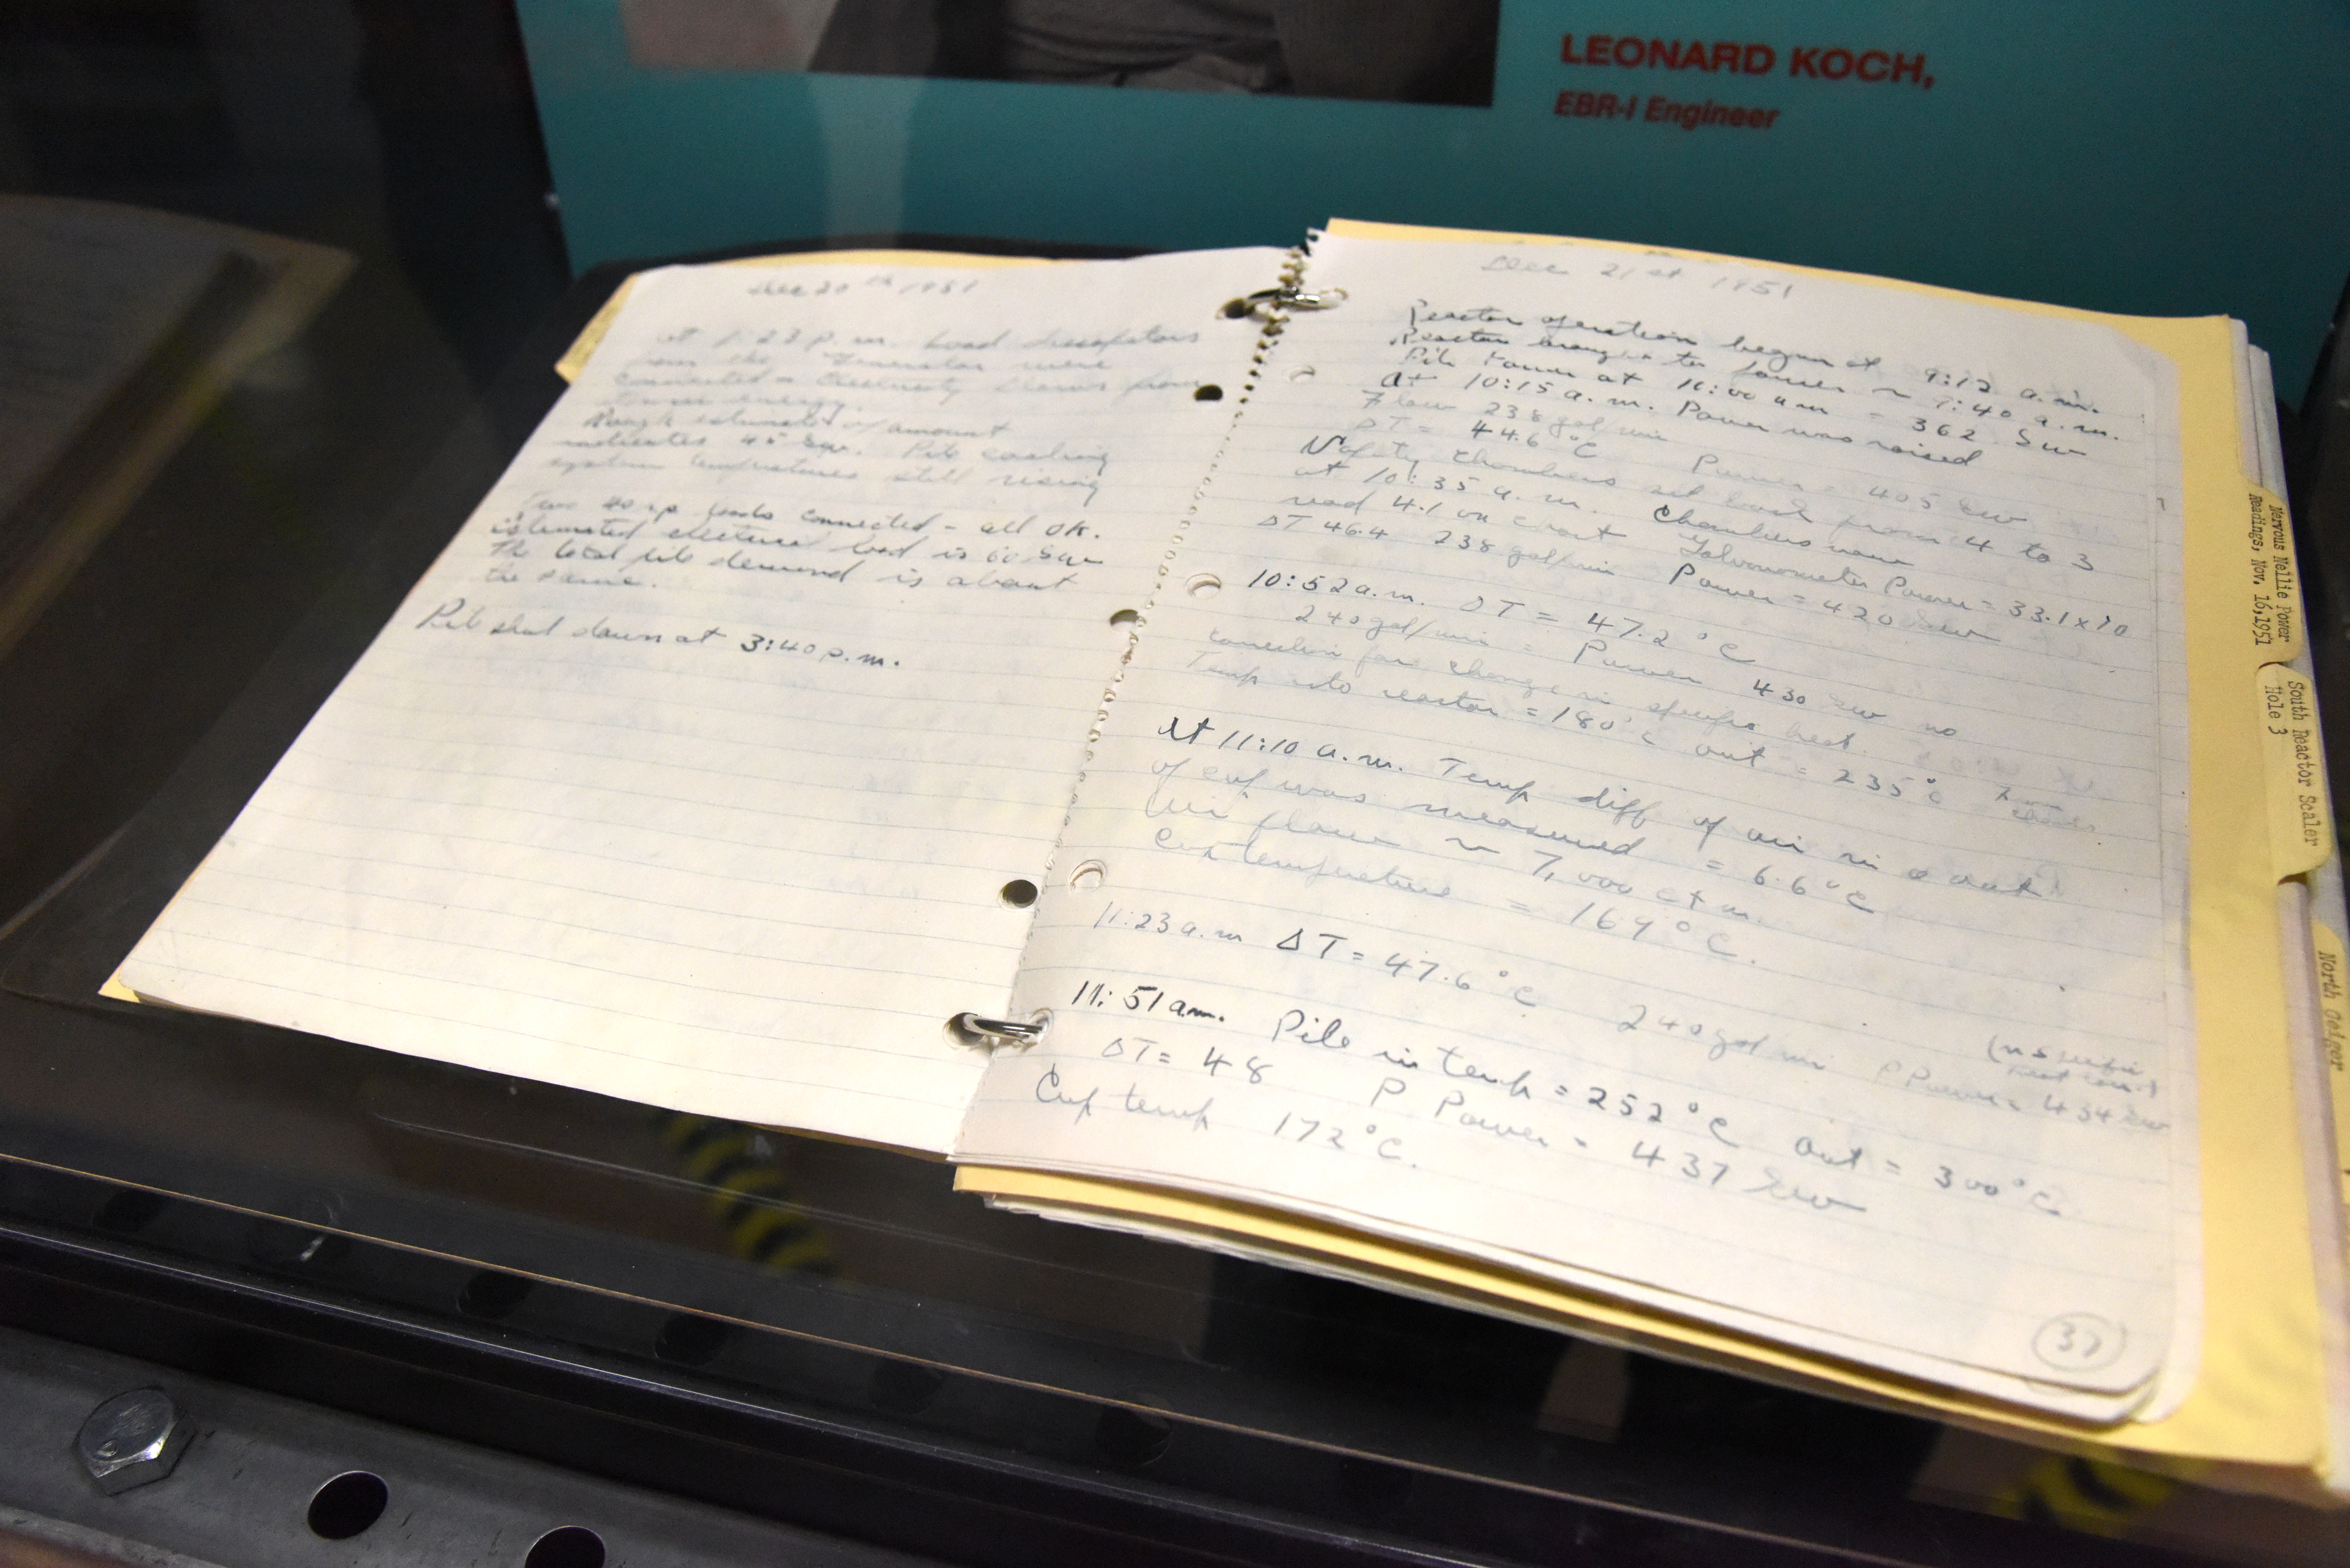 LEONARD KOCH,
EBR-I Engineer
Dec 20th 1951
At 1:23 p.m. Load dissipators
from the Generator were
connected - Electricity flows from
energy.
Rough estimate of amount
indicates 45 kw. Pile cooling
system temperatures still rising
Two 40 loads connected - all OK.
Estimated electrical load is 60 kw
The total pile demand is about
the same.
Pile shut down at 3:40 p.m.
Dec 21st 1951
Reactor operation began at 9:12 a.m.
Reactor brought to power ~ 9:40 a.m.
Pile Power at 10:00 am = 362 kw
At 10:15 a.m. Power was raised
Flow 238 gal/min
ΔT = 44.6 °C Power = 405 kw
Safety chambers set back from 4 to 3
at 10:35 a.m. Chambers now
read 4.1 on chart Galvanometer Power = 33.1 x 10
ΔT 46.4 238 gal/min Power = 420 kw
10:52 a.m. ΔT = 47.2 °C
240 gal/min = Power 430 kw no
correction for change in specific heat.
Temp into reactor = 180° C out = 235°C
At 11:10 a.m. Temp diff of air in & out
of cup was measured = 6.6 °C
Air flow ~ 7,000 cfm.
Cup temperature = 169°C.
11:23 a.m ΔT = 47.6 °C 240 gal min P Power = 434 kw
(no specific
heat corr.)
11:51 am. Pile in temp = 252 °C out = 300 °C
ΔT = 48 P Power = 437 kw
Cup temp 172°C.
37
Nervous Nellie Power
Readings, Nov. 16,1951
South Reactor Scaler
Hole 3
North Geiger